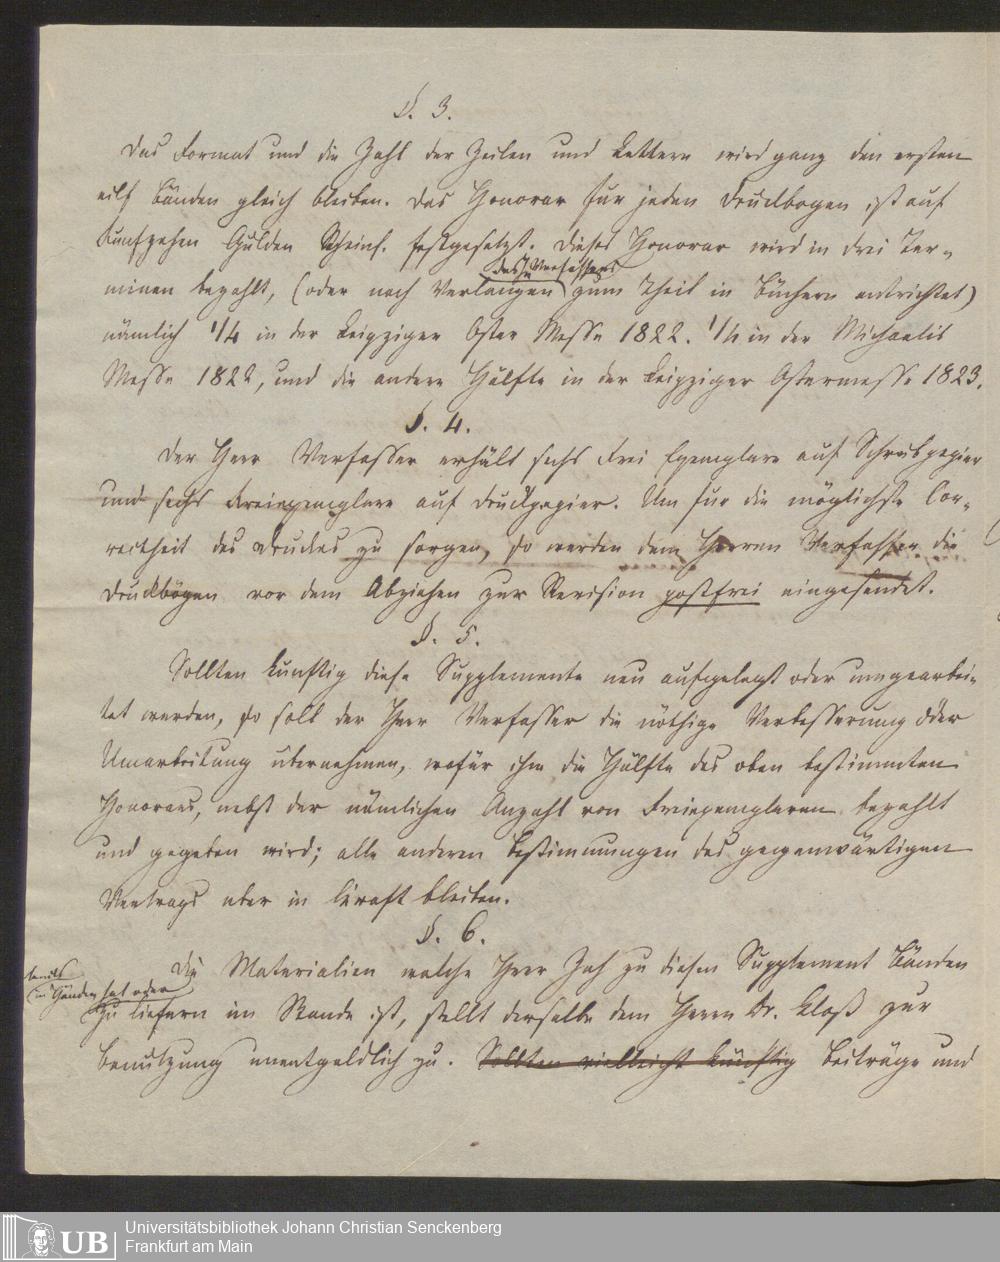 §. 3.
Das Format und die Zahl der Zeilen und Lettern wird ganz den ersten
eilf Bänden gleich bleiben. Das Honorar für jeden Druckbogen ist auf
funfzehn Gulden Rheinl. festgesetzt. Dieses Honorar wird in drei Ter-
des Verfassers
minen bezahlt, (oder nach Verlangen zum Theil in Büchern entrichtet)
nämlich 1/4 in der Leipziger Oster Messe 1822. 1/4 in der Michaelis
Messe 1822, und die andere Hälfte in der Leipziger Ostermesse 1823.
§. 4.
Der Herr Verfasser erhält sechs Frei Exemplare auf Schreibpapier
und sechs Freiexemplare auf Druckpapier. Um für die möglichste Cor-
rectheit des Druckes zu sorgen, so werden dem Herren Verfasser die
Druckbögen vor dem Abziehen zur Revision postfrei eingesendet.
§. 5.
Sollten künftig diese Supplemente neu aufgelegt oder umgearbei-
tet werden, so soll der Herr Verfasser die nöthige Verbesserung oder
Umarbeitung übernehmen, wofür ihm die Hälfte des oben bestimmten
Honorars, nebst der nämlichen Anzahl von Freiexemplaren bezahlt
und gegeben wird; alle anderen Bestimmungen des gegenwärtigen
Vertrags aber in Kraft bleiben.
§. 6.
Die Materialien welche Herr Zeh zu diesen Supplement Bänden
bereits
in Händen hat oder
zu liefern im Stande ist, stellt derselbe dem Herrn Dr. Kloß zur
Benutzung unentgeldlich zu. Sollten vielleicht künftig Beiträge und
UB
Universitätsbibliothek Johann Christian Senckenberg
Frankfurt am Main